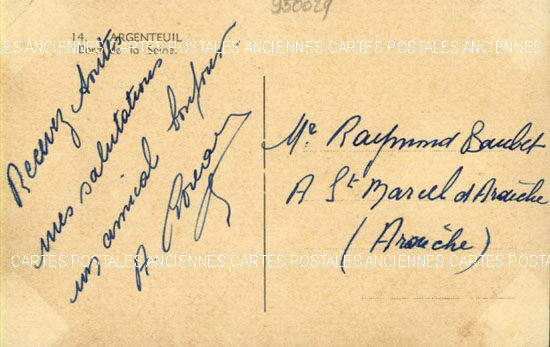 930029
14. ARGENTEUIL
CARTES POSTALES ANCIENNES CARTES POSTALES ANCIENNES CARTES POSTALES ANCIENNES
la Seine.
Recevez
mes salutations
un amical bonjour
Mr Raymond Baubet
A St Marcel d'Ardèche
(Ardèche)
CARTES POSTALES ANCIENNES CARTES POSTALES ANCIENNES CARTES POSTALES